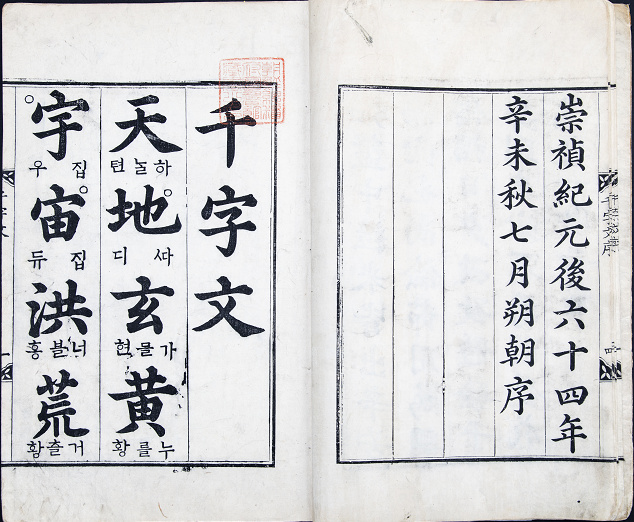 崇禎紀元後六十四年
辛未秋七月朔朝序
千字文
天 하ᄂᆞᆯ텬
地 ᄯᅡ디
玄 가믈현
黃 누를황
宇 집우
宙 집듀
洪 너블홍
荒 거츨황